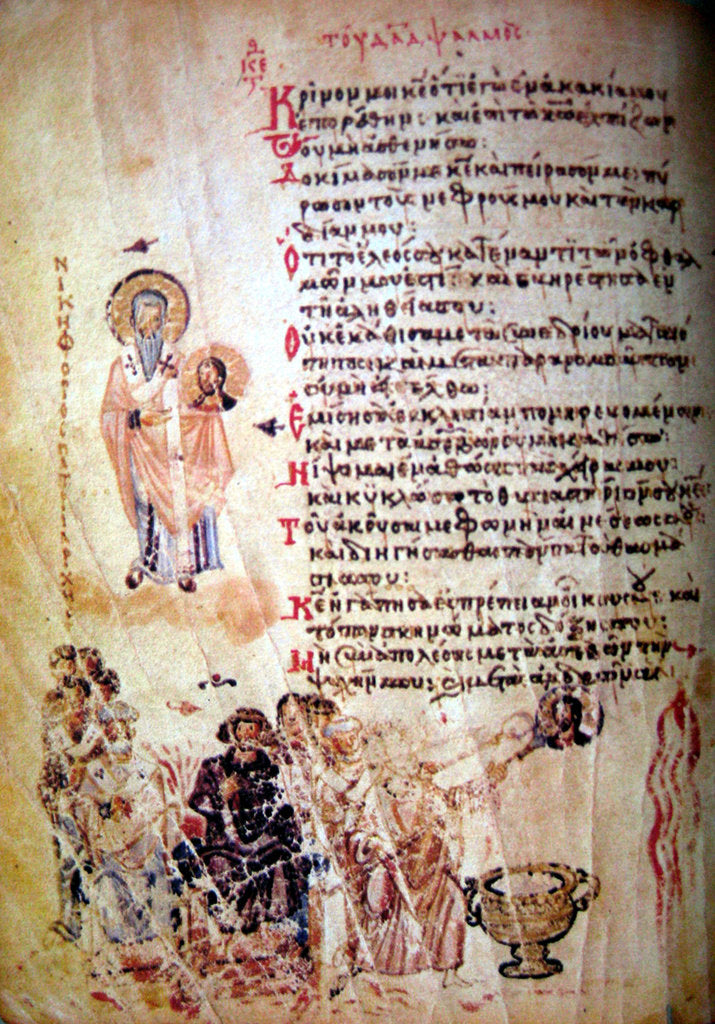 τοῦ δᾱδ ψαλμὸς
κε
Κρῖνόν μοι κε ὅτι ἐγὼ ἐν ἀκακίᾳ μου
ἐπορεύθην· καὶ ἐπὶ τῷ κω ἐλπίζων
οὐ μὴ ἀσθενήσω:
Δοκίμασόν με κε καὶ πείρασόν με· πύ
ρωσον τοὺς νεφρούς μου καὶ τὴν καρ
δίαν μου:
Ὅτι τὸ ἔλεός σου κατέναντι τῶν ὀφθαλ
μῶν μου ἐστί· καὶ εὐηρέστησα ἐν
τῇ ἀληθείᾳ σου:
Οὐκ ἐκάθισα μετὰ συνεδρίου ματαιό
τητος· καὶ μετὰ παρανομούντων
οὐ μὴ εἰσέλθω:
Ἐμίσησα ἐκκλησίαν πονηρευομένων·
καὶ μετὰ ἀσεβῶν οὐ μὴ καθίσω:
Νίψομαι ἐν ἀθώοις τὰς χεῖράς μου·
καὶ κυκλώσω τὸ θυσιαστήριόν σου κε
Τοῦ ἀκοῦσαί με φωνὴν αἰνέσεώς σου
καὶ διηγήσασθαι πάντα τὰ θαυμά
σιά σου:
Κε ἠγάπησα εὐπρέπειαν οἴκου σου· καὶ
τόπον σκηνώματος δόξης σου:
Μὴ συναπολέσῃς μετὰ ἀσεβῶν τὴν
ψυχήν μου:
ΝΙΚΗΦΟΡΟΣ